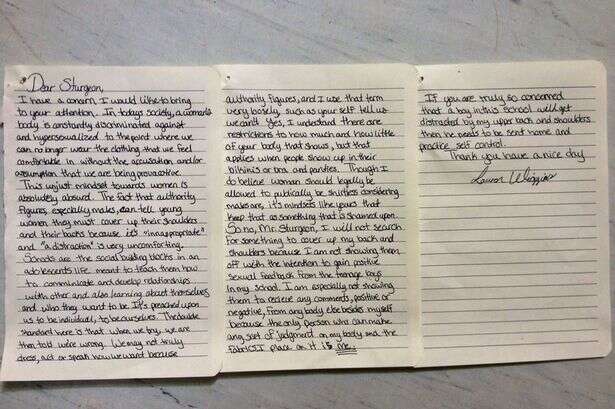 Dear Sturgeon,
I have a concern I would like to bring
to your attention. In todays society, a woman's
body is constantly discriminated against
and hypersexualized to the point where we
can no longer wear the clothing that we feel
comfortable in without the accusation and/or
assumption that we are being provocative.
This unjust mindset towards women is
absolutely absurd. The fact that authority
figures, especially males, can tell young
women they must cover up their shoulders
and their backs because it's "innappropriate"
and "a distraction" is very uncomforting.
Schools are the social building blocks in an
adolescents life meant to teach them how
to communicate and develop relationships
with other and also learning about themselves
and who they want to be. It's preached upon
us to be individual, to be ourselves. The double
standard here is that when we try, we are
then told we're wrong. We may not truly
dress, act or speak how we want because
authority figures, and I use that term
very loosely, such as your self tell us
we can't. Yes, I understand there are
restrictions to how much and how little
of your body that shows, but that
applies when people show up in their
bikinis or bra and panties. Though I
do believe woman should legally be
allowed to publically be shirtless considering
males are, it's mindsets like yours that
keep that as something that is shamed upon.
So no, Mr. Sturgeon, I will not search
for something to cover up my back and
shoulders because I am not showing them
off with the intention to gain positive
sexual feedback from the teenage boys
in my school. I am especially not showing
them to recieve any comments, positive or
negative, from any body else besides myself
because the only person who can make
any sort of judgment on my body and the
fabrics I place on it is me.
If you are truly so concerned
that a boy in this school will get
distracted by my upper back and shoulders
then he needs to be sent home and
practice self control.
Thank you have a nice day
Lauren Wiggins